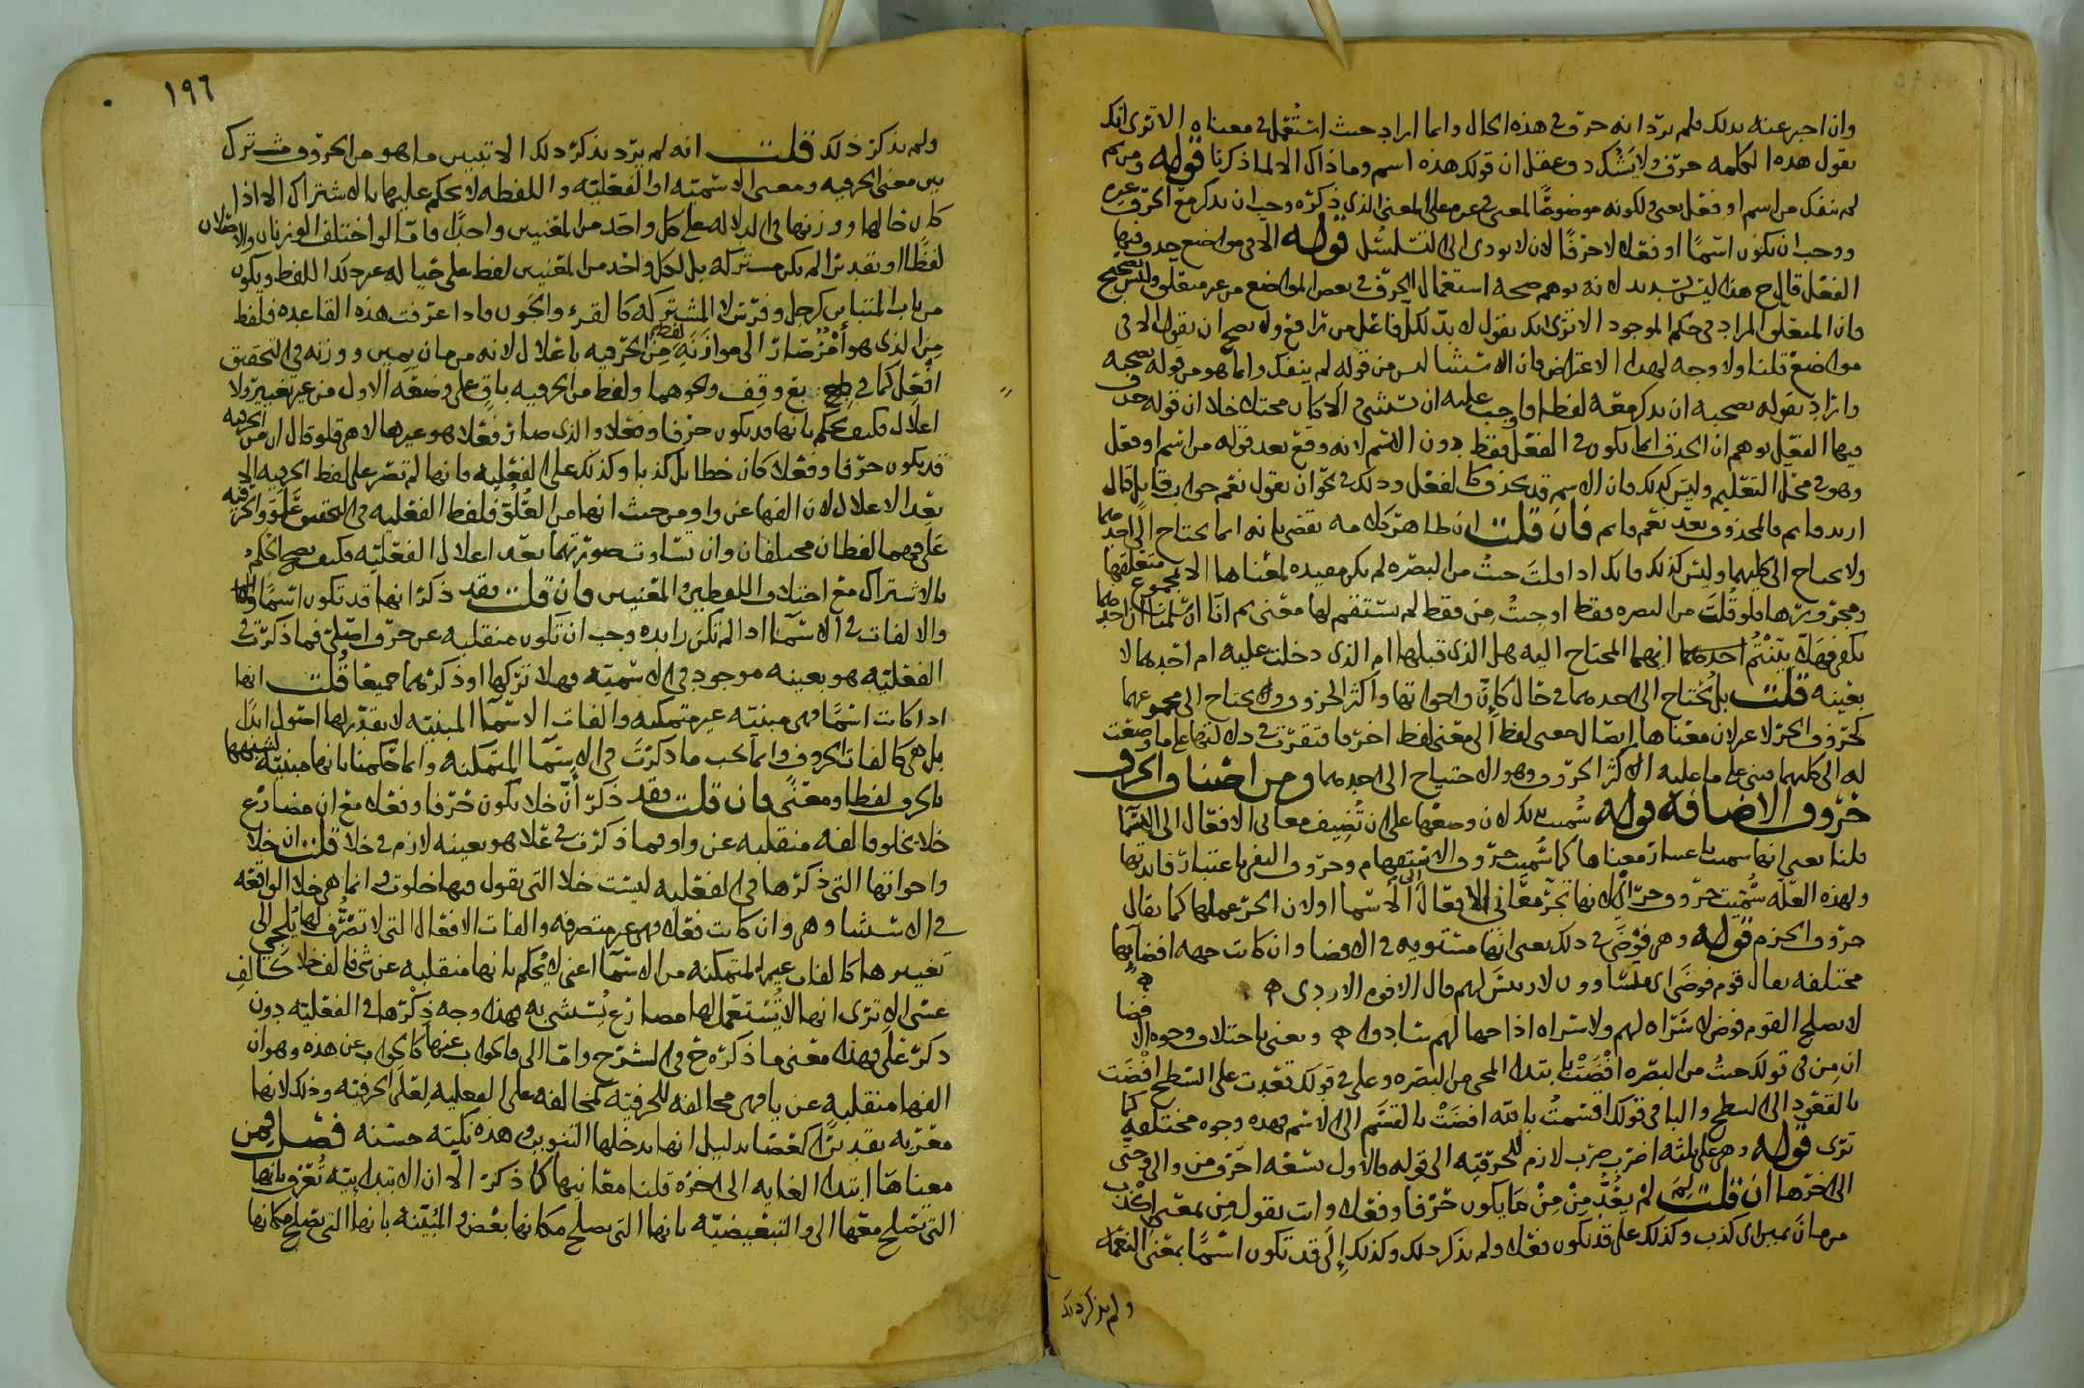 وان اخبر عنه بذلك فلم يرد انه حرف في هذه الحال وانما اراد حيث استعمل في معناه الا ترى انك
تقول هذه الكلمة حرف ولا يشكل وعقل ان قولك هذه اسم وما ذاك الا لما ذكرنا قوله ومن ثم
لم ينفك من اسم او فعل يعني ولكونه موضوعًا لمعنى في غيره على المعنى الذي ذكره وجب ان يذكر مع الحرف غيره
ووجب ان يكون اسمًا او فعلا لا حرفًا لان لا يودي الى التسلسل قوله الا في مواضع حذف فيها
الفعل قال ح هذا ليس بسديد لانه يوهم صحة استعمال الحرف في بعض المواضع من غير متعلق وليس بصحيح
فان المتعلق المراد في حكم الموجود الا ترى انك تقول لا بد لكل فاعل من رافع ولا يصح ان تقول الا في
مواضع قلنا ولا وجه لهذا الاعتراض فان الاستثنا ليس من قوله لم ينفك وانما هو من قوله يصحبه
واراد بقوله يصحبه ان يذكر معه لفظا فاوجب عليه ان يستثني والا كان مختلا خلا ان قوله حذف
فيها الفعل يوهم ان الحذف انما يكون في الفعل فقط دون الاسم لانه وقع بعد قوله من اسم او فعل
وهو في محل التعليم وليس كذلك فان الاسم قد يحذف كالفعل وذلك في نحو ان تقول نعم جواب قايل قال
ازيد قايم فالمحذوف بعد نعم قايم فان قلت ان ظاهر كلامه يقضي بانه انما يحتاج الى احدهما
ولا يحتاج الى كليهما وليس كذلك فانك اذا قلت جيت من البصره لم يكن مفيده لمعناها الا بمجموع متعلقها
ومجرورها فلو قلت من البصره فقط او جيت من فقط لم يستقم لها معنى ثم انا ان سلمنا ان احدهما
يكفي فهلا بينتم احدهما ايهما المحتاج اليه هل الذي قبلها ام الذي دخلت عليه ام احدهما لا
بعينه قلت بل يحتاج الى احدهما في حال كان واخواتها واكثر الحروف ولا يحتاج الى مجموعهما
كحروف الجر لا غير لان معناها ايصال معنى لفظ الى معنى لفظ اخر فافتقرت في دلالتها على ما وضعت
له الى كليهما فبني على ما عليه الاكثر الحروف وهو الاحتياج الى احدهما ومن اصناف الحرف
حروف الاضافة قوله سميت بذلك لان وضعها على ان تضيف معاني الافعال الى الاسما
قلنا يعني انها سميت باعتبار معناها كما سميت حروف الاستفهام وحروف النفي باعتبار فايدتها
ولهذه العلة سميت حروف جر اي لانها تجر معاني الافعال الى الاسما او لان الجر عملها كما يقال
حروف الجزم قوله وهي فوضى في ذلك يعني انها مستويه في الافضا وان كانت جهه افضايها
مختلفه يقال قوم فوضى اي متساوون لا رييس لهم قال الافوه الاودي ه
لا يصلح القوم فوضى لا سراة لهم ولا سراه اذا جهالهم سادوا ه ويعني باختلاف وجوه الافضا
ان من في قولك جيت من البصره افضت بابتدا المجي من البصره وعلى في قولك قعدت على السطح افضت
بالقعود الى السطح والبا في قولك اقسمت بالله افضت بالقسم الى الاسم فهذه وجوه مختلفه كما
ترى قوله وهي على ثلثه اضرب ضرب لازم للحرفيه الى قوله فالاول تسعه احرف من والى وحتى
الى اخرها ان قلت لم لم يعد من من ما يكون حرفا وفعلا وانت تقول من بمعنى اكذب
من مان يمين اي كذب وكذلك على قد تكون فعلا ولم يذكر ذلك وكذلك الى قد تكون اسمًا بمعنى النعمه
ولم يذكر ذلك
١٩٦
ولم يذكر ذلك قلت انه لم يرد بذكر ذلك الا تبيين ما هو من الحروف مشترك
بين معنى الحرفيه ومعنى الاسميه او الفعليه واللفظه لا يحكم عليها بالاشتراك الا اذا
كان حالها ووزنها في الدلاله على كل واحد من المعنيين واحدًا فاما لو اختلف الوزنان والاصلان
لفظًا او تقديرًا لم يكن مشتركه بل لكل واحد من المعنيين لفظ على حياله غير ذلك اللفظ ويكون
من باب المتباين كرجل وفرس لا المشترك كالقرء والجون فاذا عرفت هذه القاعده فلفظ
من الذي هو امر صار الى موازنه لفظ من الحرفيه باعلال لانه من مان يمين ووزنه في التحقيق
افعل كما في بع وقف ونحوهما ولفظ من الحرفيه باق على وضعه الاول من غير تغيير ولا
اعلال فكيف يحكم بانها قد تكون حرفا وفعلا والذي صار فعلا هو غيرها لا هي فلو قال ان من الحرفيه
قد يكون حرفا وفعلا كان خطا بل كذبا وكذلك على الفعليه فانها لم تصر على لفظ الحرفيه الا
بعد الاعلال لان الفها عن واو من حيث انها من العلو فلفظ الفعليه في التحقيق علو والحرفيه
على فهما لفظان مختلفان وان تساوت صورتهما بعد اعلال الفعليه فكيف يصح الحكم
بالاشتراك مع اختلاف اللفظين والمعنيين فان قلت فقد ذكر انها قد تكون اسمًا
والالفات في الاسما اذا لم تكن زايده وجب ان تكون منقلبه عن حرف اصلي فما ذكرت في
الفعليه هو بعينه موجود في الاسميه فهلا تركها او ذكرهما جميعا قلت انها
اذا كانت اسمًا فهي مبنيه غير متمكنه والفات الاسما المبنيه لا يقدر لها اصول ابدًا
بل هي كالفات الحروف وانما يجب ما ذكرت في الاسما المتمكنه وانما حكمنا بانها مبنيه لشبهها
بالحرف لفظا ومعنًى فان قلت فقد ذكر ان خلا يكون حرفا وفعلا مع ان مضارع
خلا يخلو فالفه منقلبه عن واو فما ذكرت في علا هو بعينه لازم في خلا قلت ان خلا
واخواتها التي ذكرها في الفعليه ليست خلا التي يقول فيها خلوت وانما هي خلا الواقعه
في الاستثنا وهي وان كانت فعلا فهي غير متصرفه والفات الافعال التي لا تصرف لها يلجي الى
تغييرها كالفات غير المتمكنه من الاسما اعني لا يحكم بانها منقلبه عن شي فالف خلا كالف
عسى الا ترى انها لا يستعمل لها مضارع يستثنى به فهذا وجه ذكرها في الفعليه دون
ذكر على فهذا معنى ما ذكره ح في الشرح واما الى فالجواب عنها كالجواب عن هذه وهو ان
الفها منقلبه عن يا فهي مخالفه للحرفيه كمخالفه على الفعليه لعلى الحرفيه وذلك لانها
معربه تقديرًا كعصا بدليل انها يدخلها التنوين وهذه نكته حسنه فصل فمن
معناها ابتدا الغايه الى اخره قلنا معانيها كما ذكر الا ان الابتدائيه تعرف بانها
التي تصلح معها الى والتبعيضيه بانها التي يصلح مكانها بعض والمبينه بانها التي يصلح مكانها